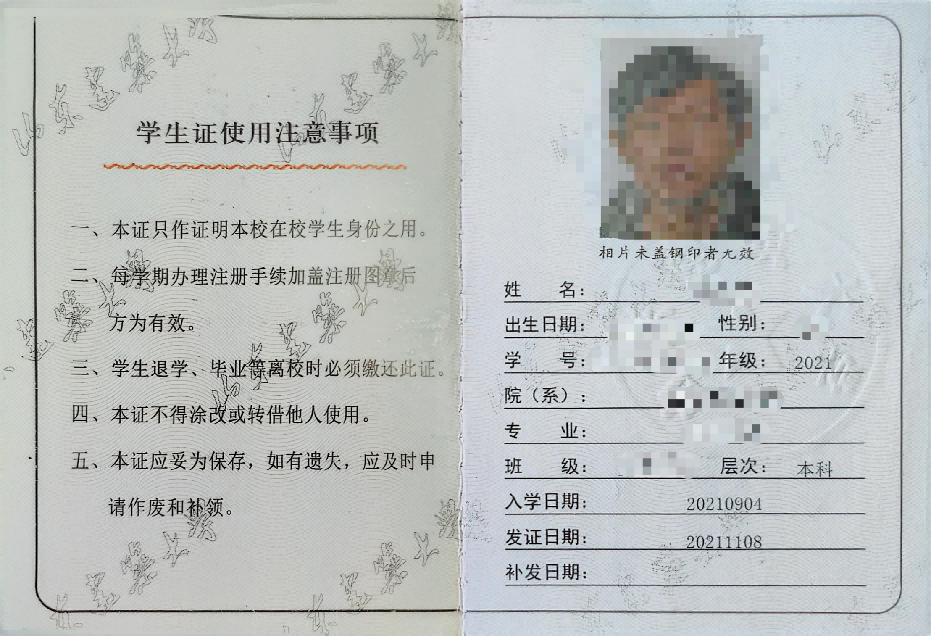 学生证使用注意事项
一、本证只作证明本校在校学生身份之用。
二、每学期办理注册手续加盖注册图章后
方为有效。
三、学生退学、毕业等离校时必须缴还此证。
四、本证不得涂改或转借他人使用。
五、本证应妥为保存，如有遗失，应及时申
请作废和补领。
相片未盖钢印者无效
姓 名：
出生日期： 性别：
学 号： 年级： 2021
院（系）：
专 业：
班 级： 层次： 本科
入学日期： 20210904
发证日期： 20211108
补发日期：